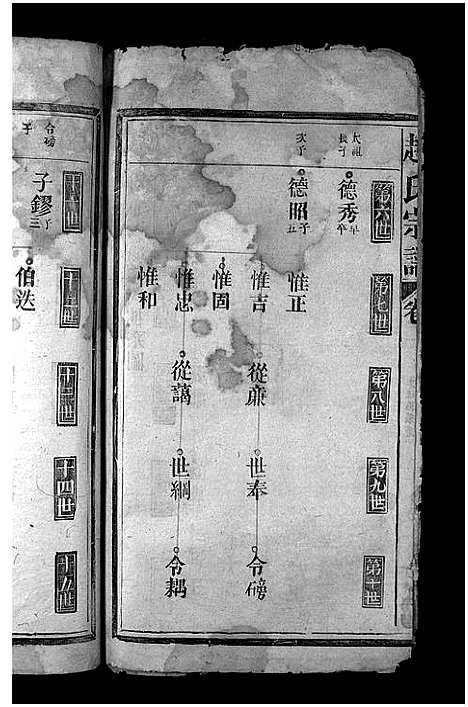 趙氏宗譜
卷
第六世
第七世
第八世
第九世
第十世
太祖長子
德秀早卒
次子
德昭五子
惟正
惟吉
惟固
惟忠
惟和
從廉
從藹
世奉
世綱
令磅
令耦
十四世
十五世
令磅子
子鏐三子
伯迖